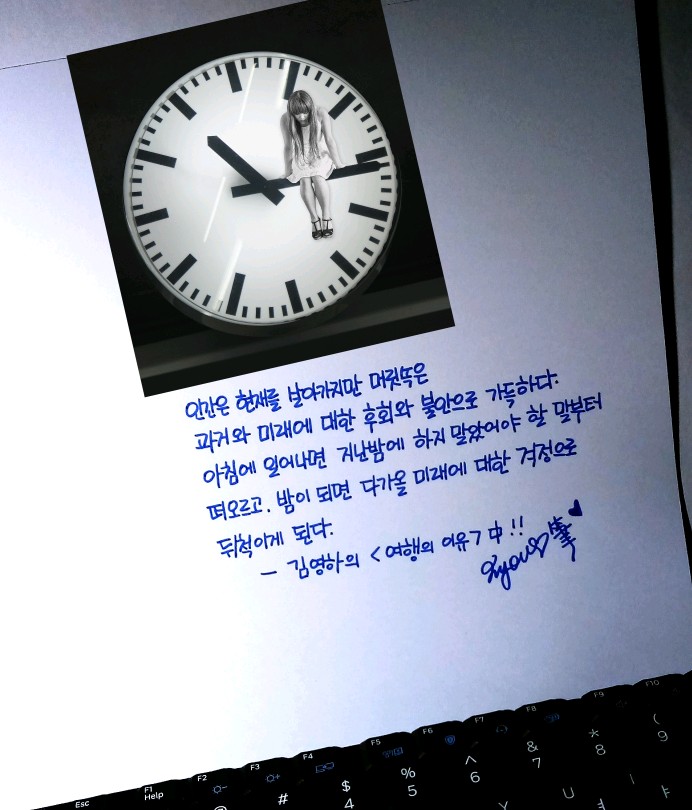 인간은 현재를 살아가지만 머릿속은
과거와 미래에 대한 후회와 불안으로 가득하다.
아침에 일어나면 지난밤에 하지 말았어야 할 말부터
떠오르고. 밤이 되면 다가올 미래에 대한 걱정으로
뒤척이게 된다.
- 김영하의 <여행의 이유> 中!!
Esc F1 F2 F3 F4 F5 F6 F7 F8 F9 F10
Help
# $ % ^ & * (
4 5 6 7 8 9
Y U I